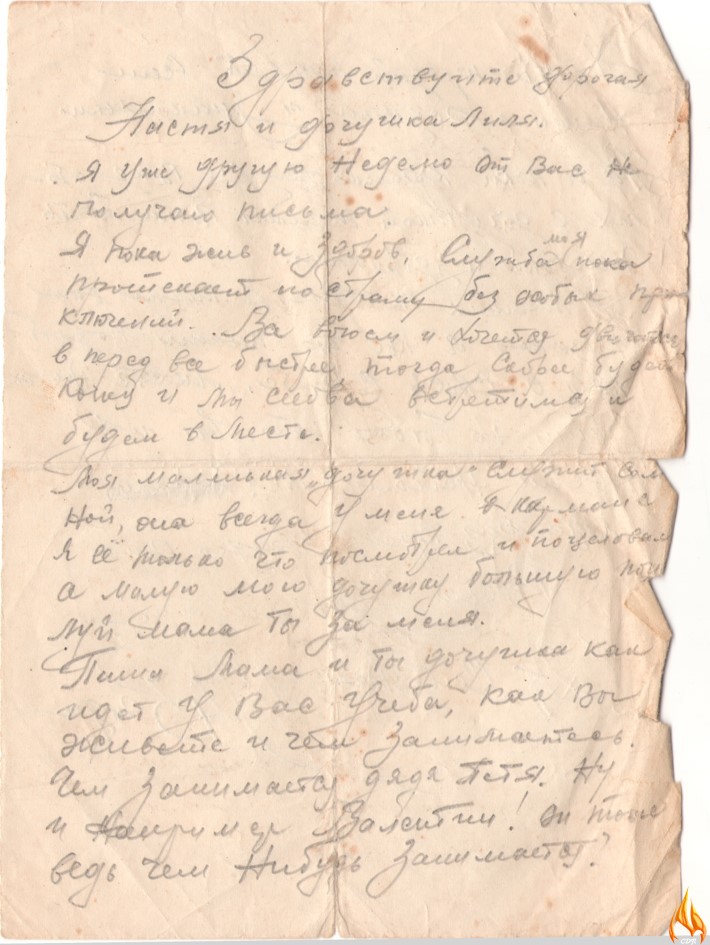 Здравствуйте дорогая
Настя и дочушка Лиля.
Я уже другую неделю от Вас не
получаю письма.
Я пока жив и здоров. Служба моя пока
протекает по старому без особых при
ключений. Ва всюем и хочется двигатся
в перед все быстрей тогда скоре будет
конец и мы снова встретимся и
будем в месте.
Моя маленькая „дочушка" служит со м
ной, она всегда у меня в кармане
Я её только что посмотрел и поцеловал
а малую мою дочушку большую поце
луй мама ты за меня.
Пиши мама и ты дочушка как
идет у Вас учеба, как Вы
живете и чем занимаетесь.
Чем занимается дядя Петя. Ну
и например Валентин! он тоже
ведь чем нибудь занимается?